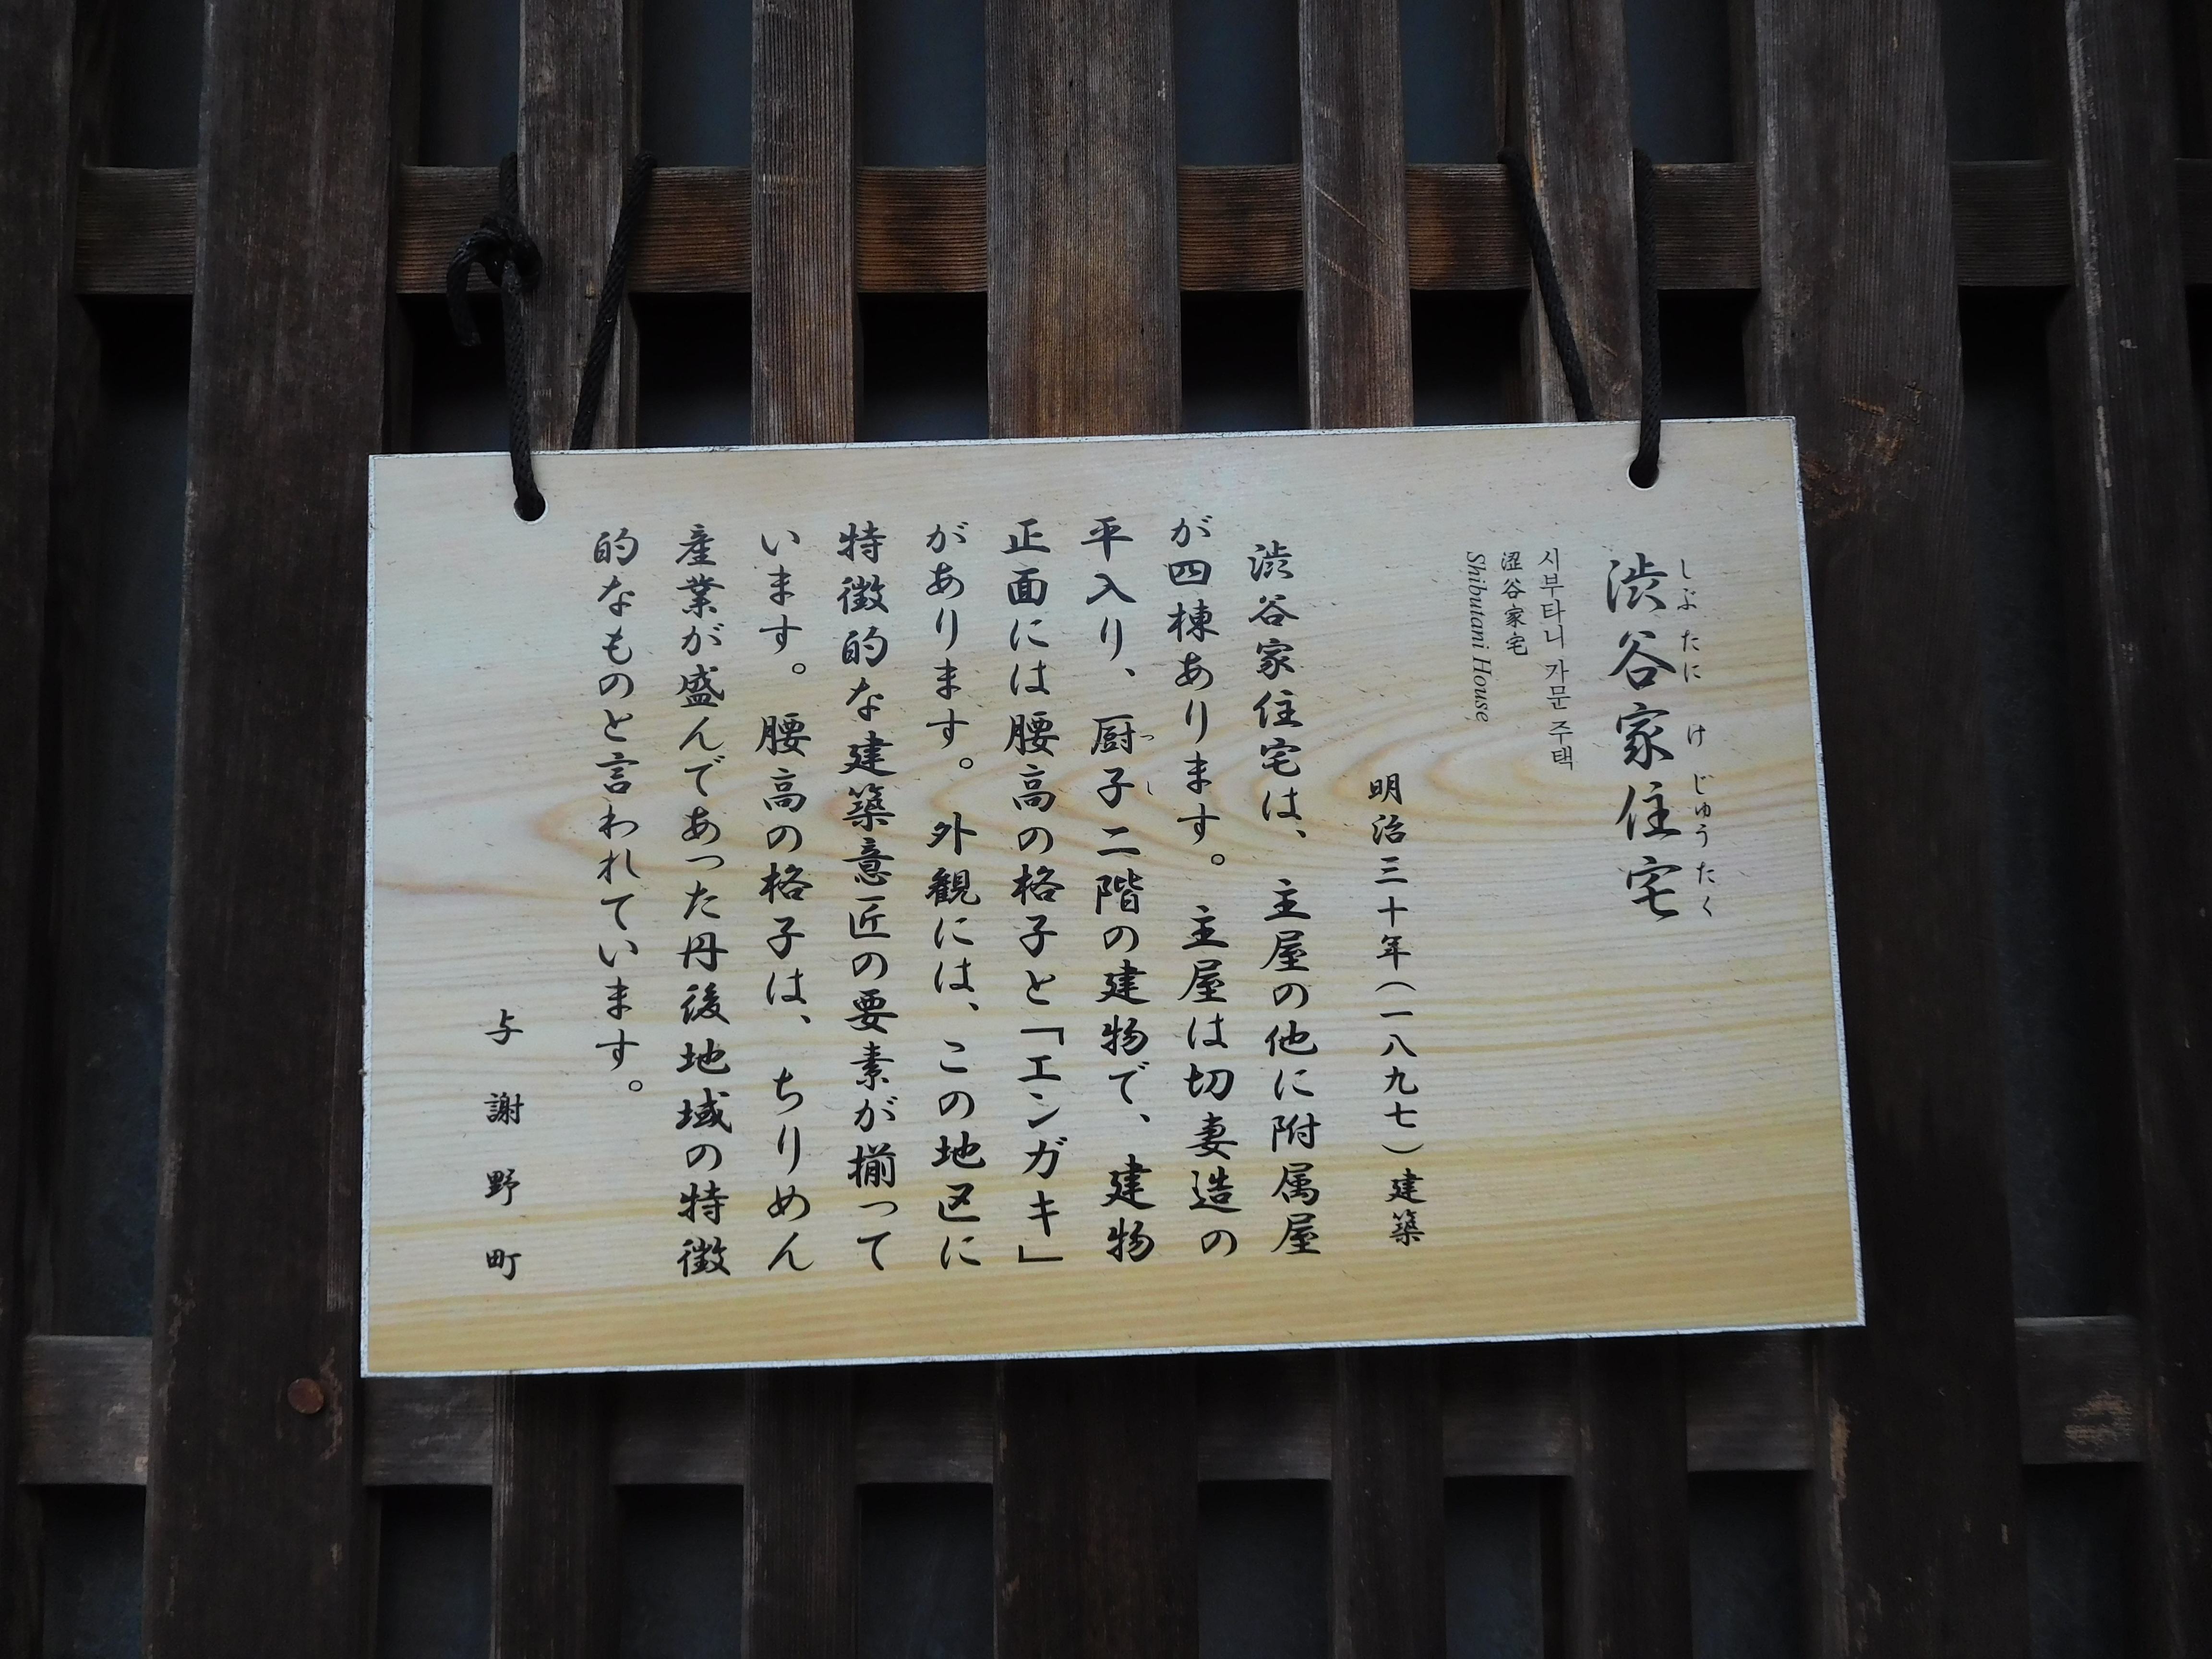 渋谷家住宅
しぶたにけじゅうたく
시부타니 가문 주택
涩谷家宅
Shibutani House
明治三十年（一八九七）建築
渋谷家住宅は、主屋の他に附属屋
が四棟あります。主屋は切妻造の
平入り、厨子二階の建物で、建物
つし
正面には腰高の格子と「エンガキ」
があります。外観には、この地区に
特徴的な建築意匠の要素が揃って
います。腰高の格子は、ちりめん
産業が盛んであった丹後地域の特徴
的なものと言われています。
与謝野町